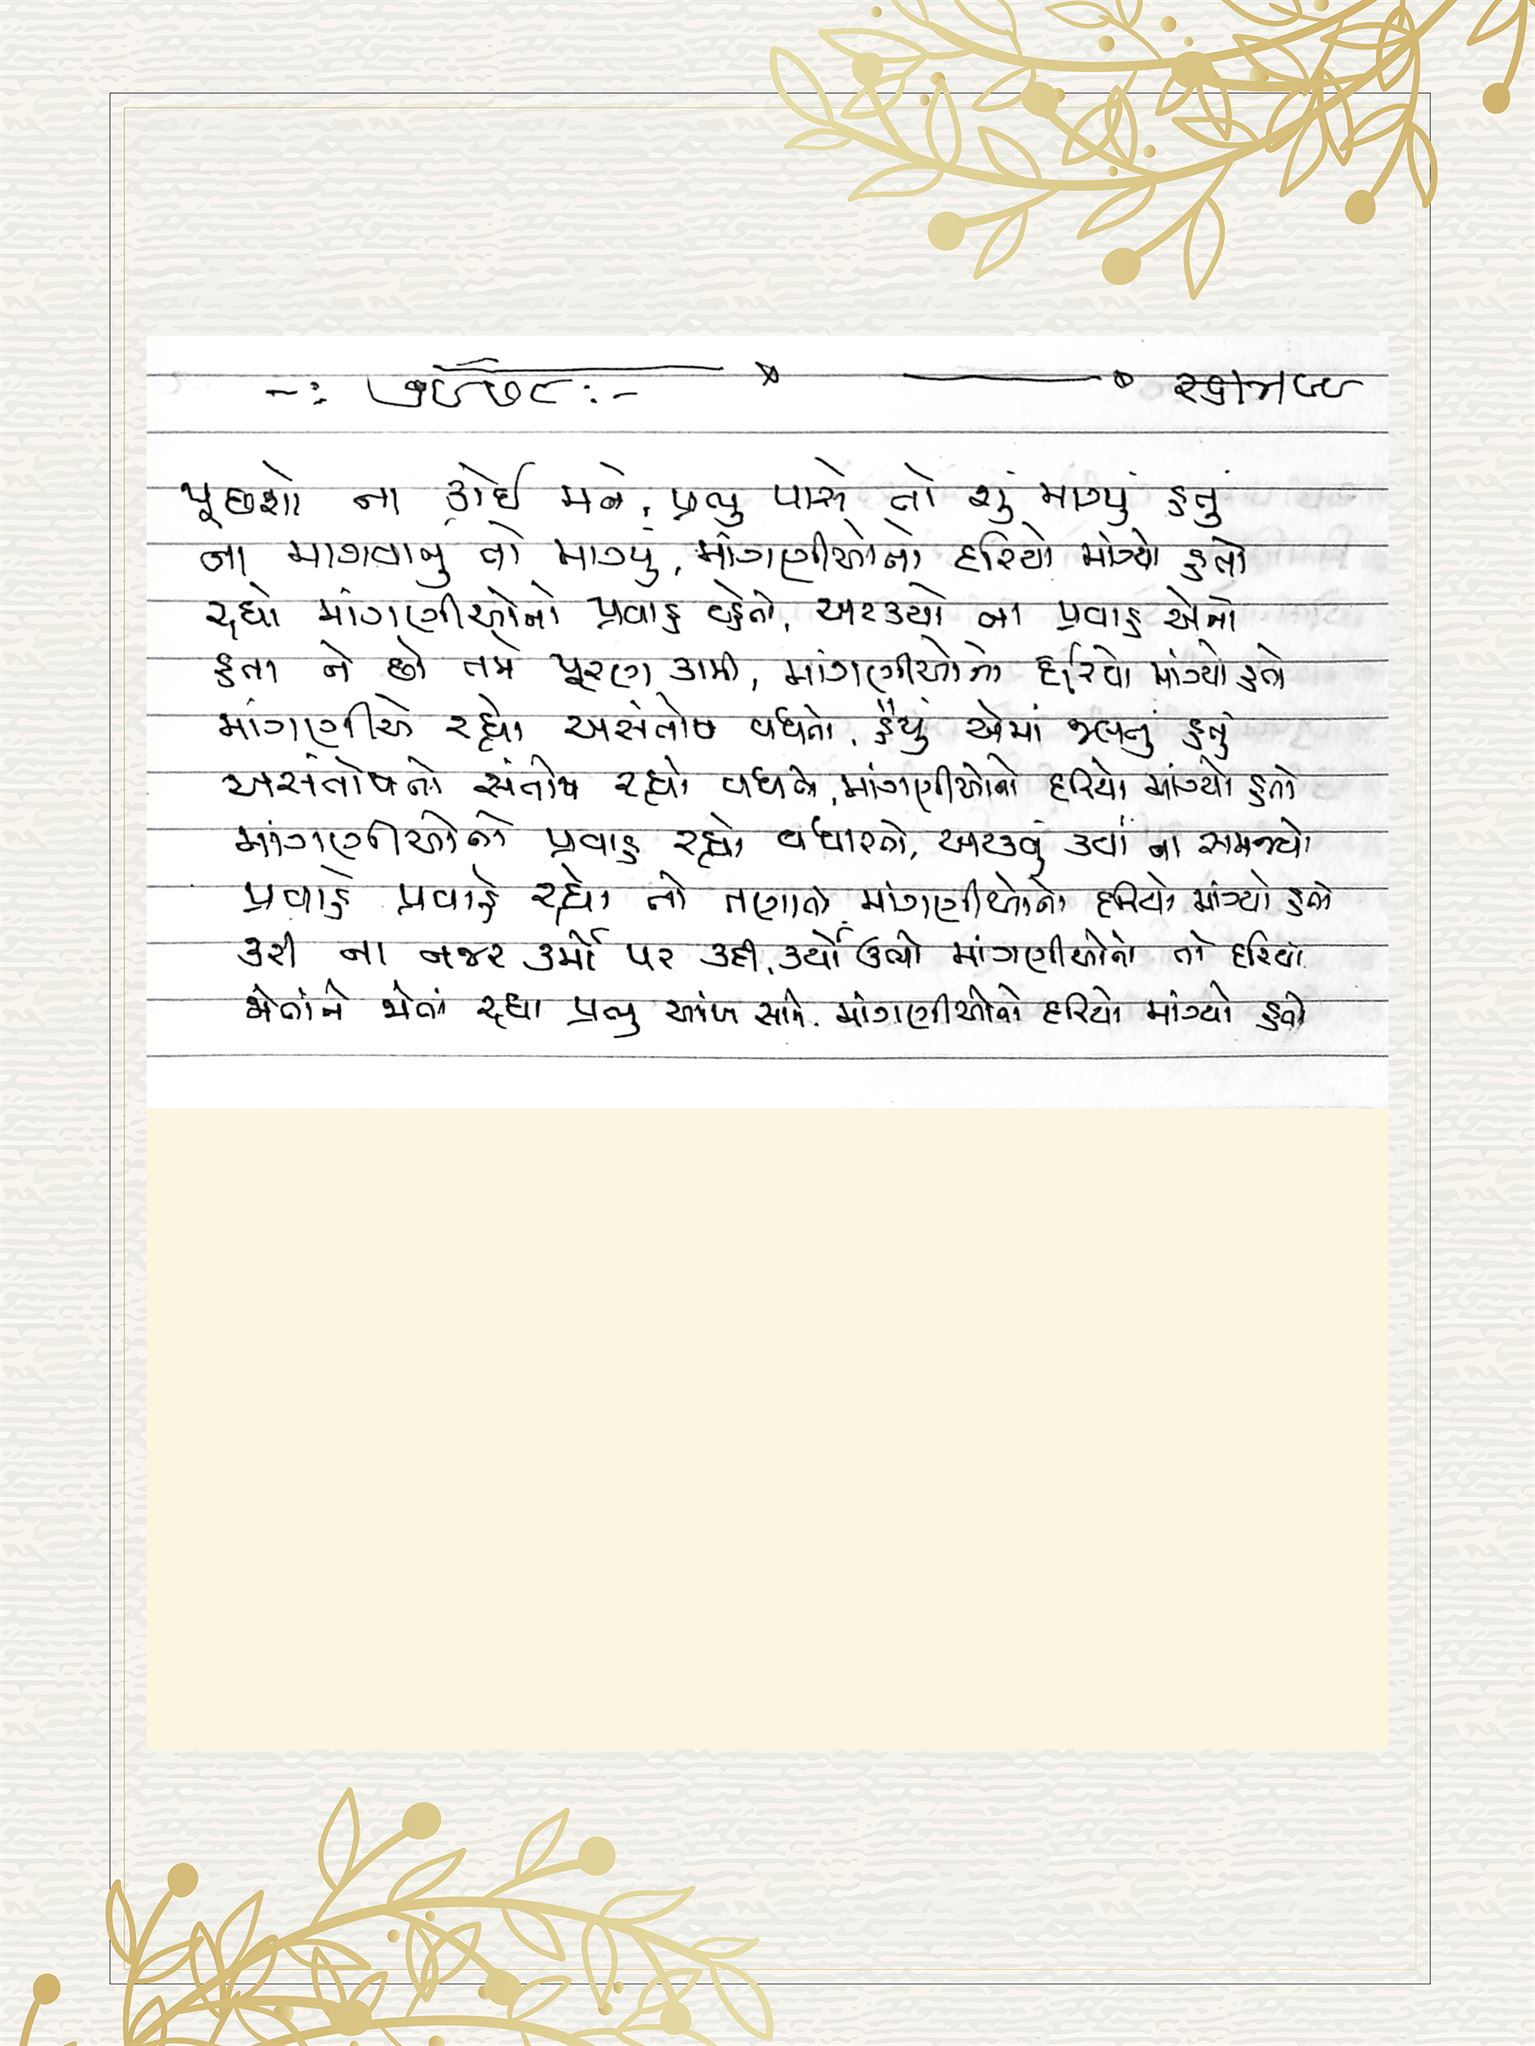 પૂછશો ના કોઈ મને, પ્રભુ પાસે તો શું માગ્યું હતું
ના માગવાનું તો માગ્યું, માંગણીઓનો દરિયો માંગ્યો હતો
રહ્યો માંગણીઓનો પ્રવાહ વહેતો, અટક્યો ના પ્રવાહ એનો
હતા ને છો તમે પૂરણ કામી, માંગણીઓનો દરિયો માંગ્યો હતો
માંગણીએ રહ્યો અસંતોષ વધતો, હૈયું એમાં જલતું હતું
અસંતોષનો સંતોષ રહ્યો વધતો, માંગણીઓનો દરિયો માંગ્યો હતો
માંગણીઓનો પ્રવાહ રહ્યો વધારતો, અટકવું ક્યાં ના સમજ્યો
પ્રવાહે પ્રવાહે રહ્યો તો તણાતો માંગણીઓનો દરિયો માંગ્યો હતો
કરી ના નજર કર્મો પર કદી, કર્યો ઉભો માંગણીઓનો તો દરિયો
જોતાંને જોતાં રહ્યા પ્રભુ આંખ સામે, માંગણીઓનો દરિયો માંગ્યો હતો